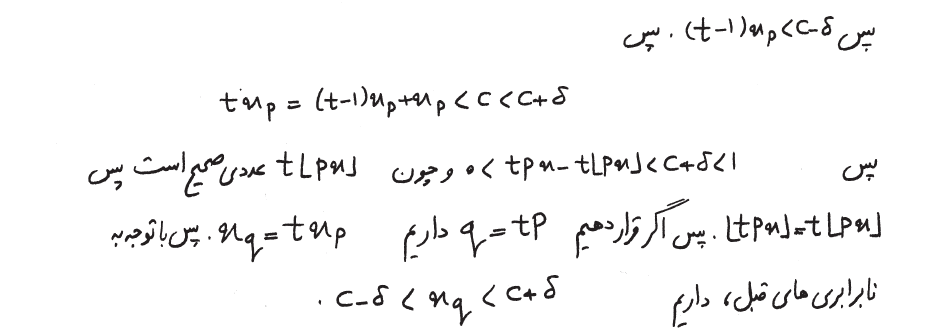 پس (t-1)x_p < c-δ . پس
t x_p = (t-1)x_p + x_p < c < c+δ
پس 0 < tpx - t⌊px⌋ < c+δ < 1 و چون t⌊px⌋ عددی صحیح است پس
⌊tpx⌋ = t⌊px⌋ . پس اگر قرار دهیم q = tp داریم x_q = t x_p . پس با توجه به
نابرابری های قبل، داریم c-δ < x_q < c+δ .